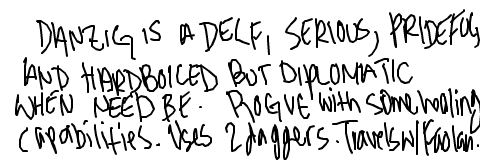 DANZIG IS A DELF, SERIOUS, PRIDEFUL
AND HARDBOILED BUT DIPLOMATIC
WHEN NEED BE. ROGUE with some healing
capabilities. Uses 2 daggers. Travels w/ Faolan.